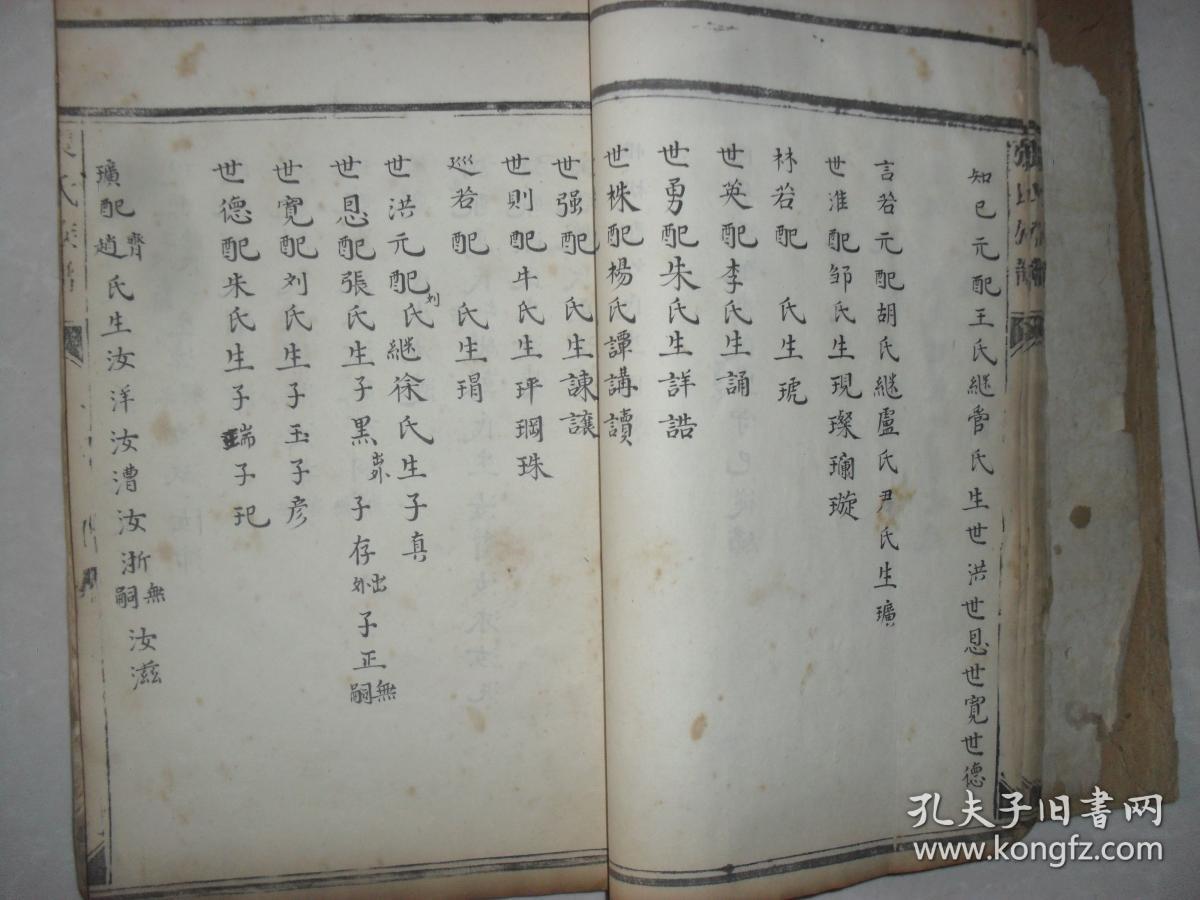 知已元配王氏継管氏生世洪世恩世寬世德
言若元配胡氏継盧氏尹氏生璸
世淮配邹氏生現璨瓓璇
林若配 氏生琥
世英配李氏生誦
世勇配朱氏生詳誥
世株配楊氏譚講讀
世强配 氏生諫讓
世則配牛氏生玶琱珠
巡若配 氏生琄
世洪元配刘氏継徐氏生子真
世恩配張氏生子黑出外子存出外子正無嗣
世寬配刘氏生子玉子彦
世德配朱氏生子瑞子玘
璸配齊趙氏生汝洋汝漕汝浙無嗣汝滋
氏族譜
孔夫子旧书网
www.kongfz.com